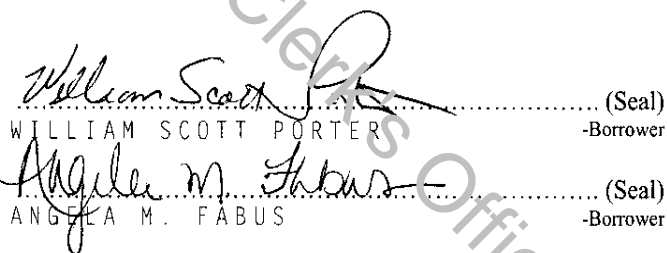 William Scott Porter (Seal)
WILLIAM SCOTT PORTER -Borrower
Angela M. Fabus (Seal)
ANGELA M. FABUS -Borrower
Clerk's Offic